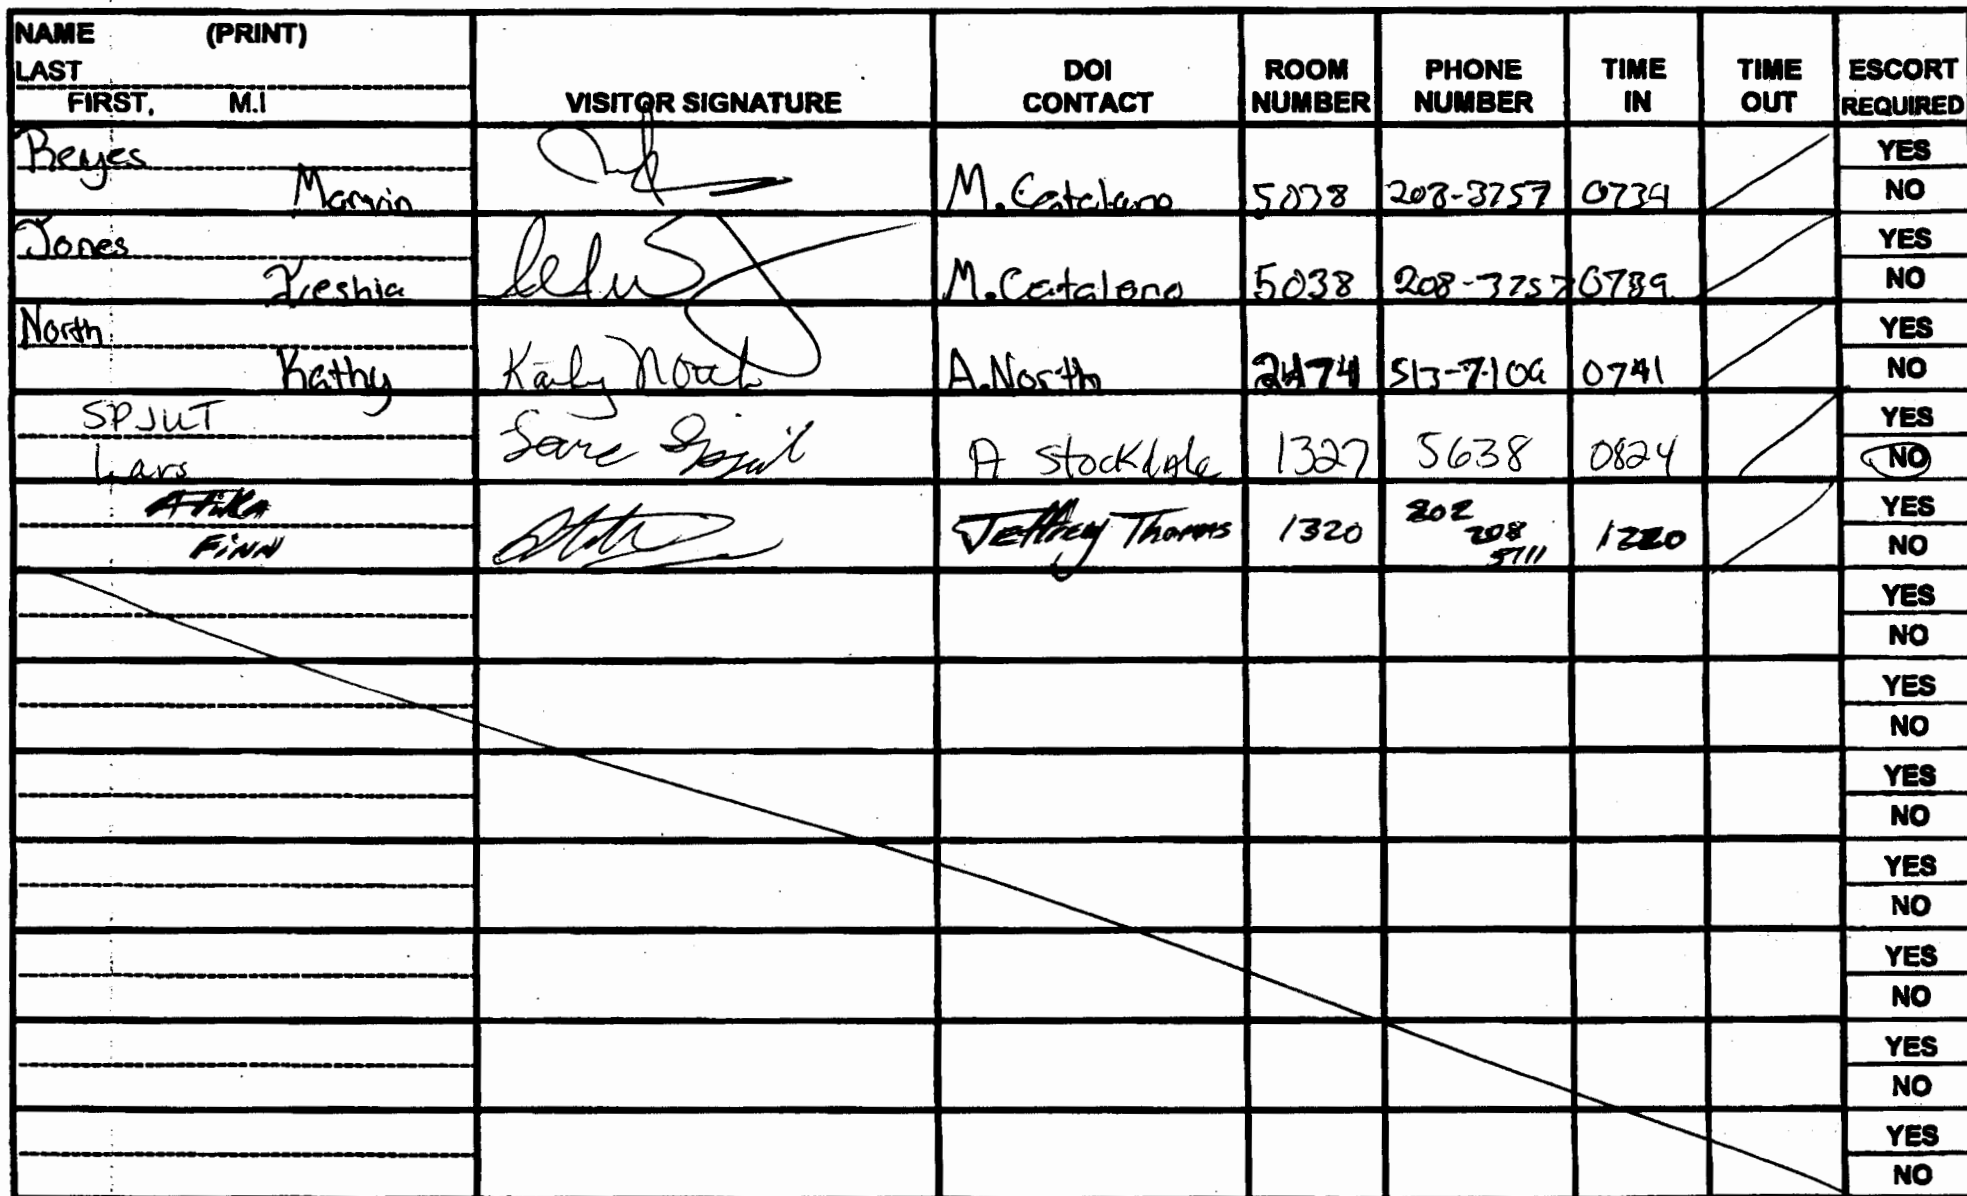 NAME (PRINT)
LAST
FIRST, M.I
VISITOR SIGNATURE
DOI
CONTACT
ROOM
NUMBER
PHONE
NUMBER
TIME
IN
TIME
OUT
ESCORT
REQUIRED
Reyes
Marvin
M. Catalano
5038
208-3757
0734
YES
NO
Jones
Kieshia
M. Catalano
5038
208-3757
0739
YES
NO
North
Kathy
Kathy North
A. North
2474
513-7109
0741
YES
NO
SPJUT
Lars
A Stockdale
1327
5638
0824
YES
NO
Atika
FINN
Jeffrey Thomas
1320
202
208
5711
1220
YES
NO
YES
NO
YES
NO
YES
NO
YES
NO
YES
NO
YES
NO
YES
NO